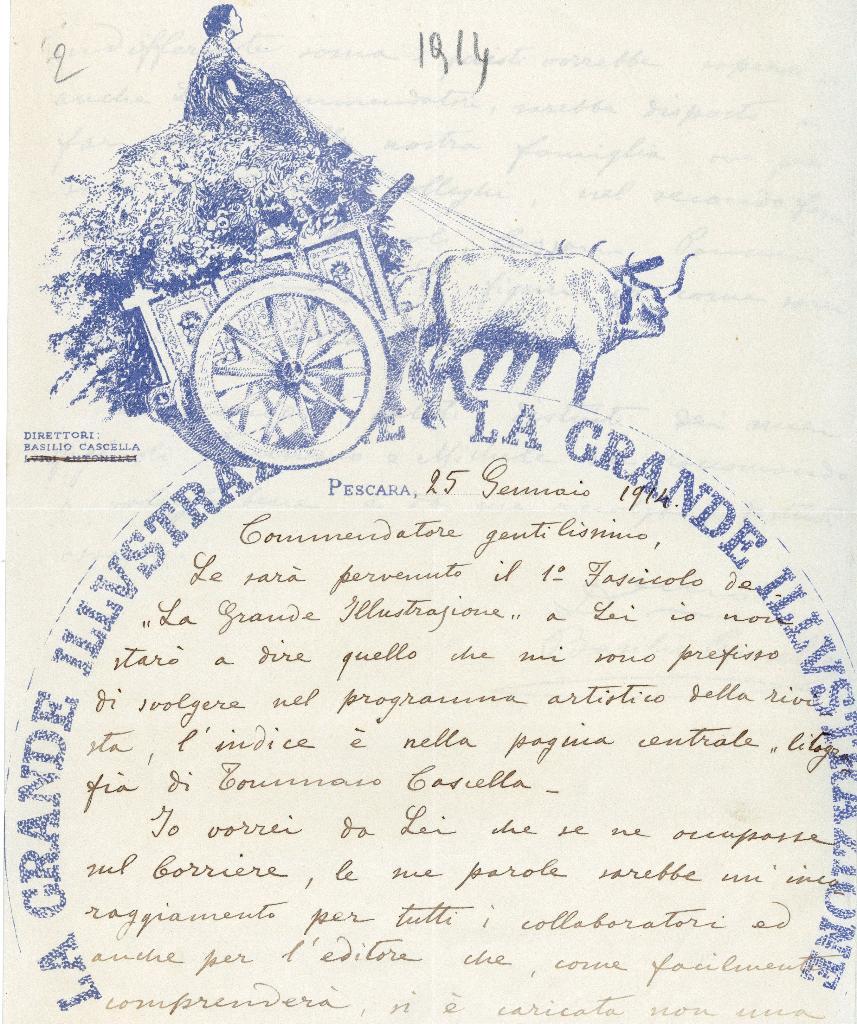 2
1914
DIRETTORI:
BASILIO CASCELLA
LUIGI ANTONELLI
LA GRANDE ILLVSTRAZIONE LA GRANDE ILLVSTRAZIONE
PESCARA, 25 Gennaio 1914.
Commendatore gentilissimo,
Le sarà pervenuto il 1º Fascicolo de
"La Grande Illustrazione" a Lei io non
starò a dire quello che mi sono prefisso
di svolgere nel programma artistico della rivi
sta, l'indice è nella pagina centrale "litogra
fia di Tommaso Cascella_
Io vorrei da Lei che se ne occupasse
sul Corriere, le sue parole sarebbe un' inco
raggiamento per tutti i collaboratori ed
anche per l'editore che, come facilmente
comprenderà, si è caricato non una